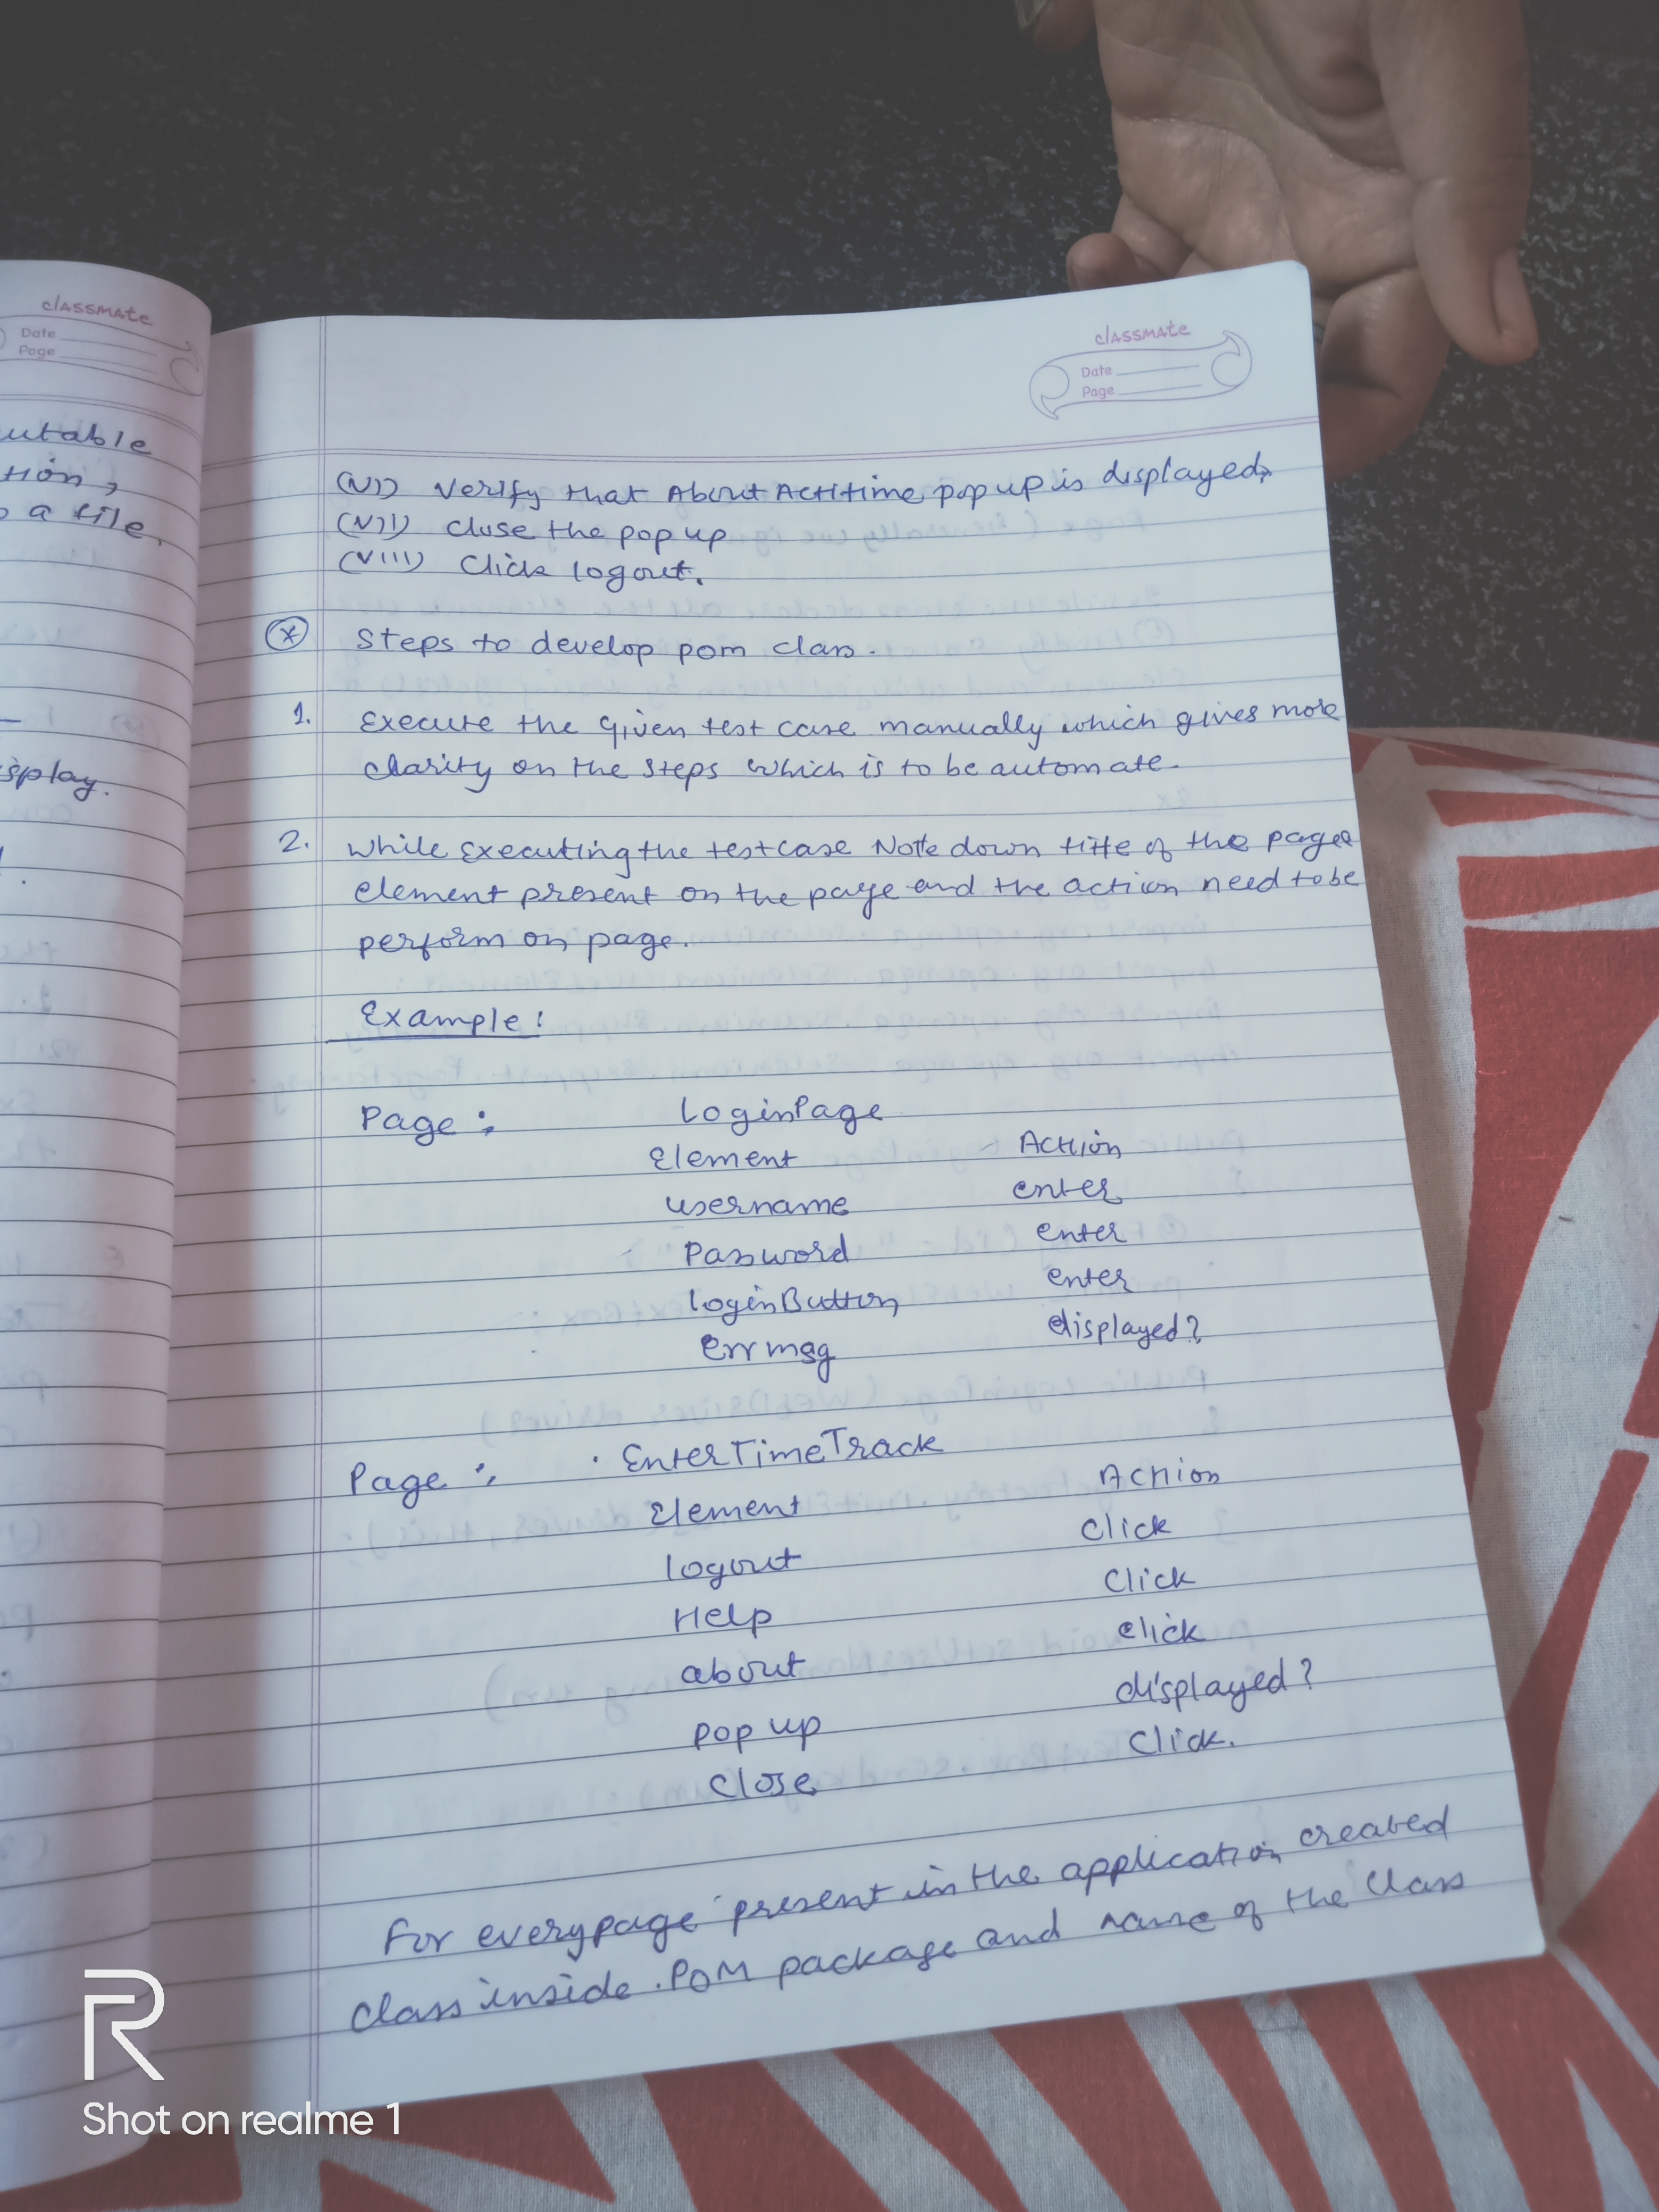 classmate
Date
Page
utable
tion,
o a file.
splay.
classmate
Date
Page
(VI) Verify that About Actitime pop up is displayed.
(VII) Close the pop up
(VIII) Click logout.
Steps to develop pom class.
1. Execute the given test case manually which gives more
clarity on the steps which is to be automate.
2. While Executing the testcase Note down title of the page
element present on the page and the action need to be
perform on page.
Example:
Page: LoginPage
Element Action
username enter
Password enter
loginButton enter
Err msg displayed?
Page: EnterTimeTrack
Element Action
logout Click
Help Click
about click
pop up displayed?
Close Click.
For every page present in the application created
class inside POM package and name of the class
R
Shot on realme 1